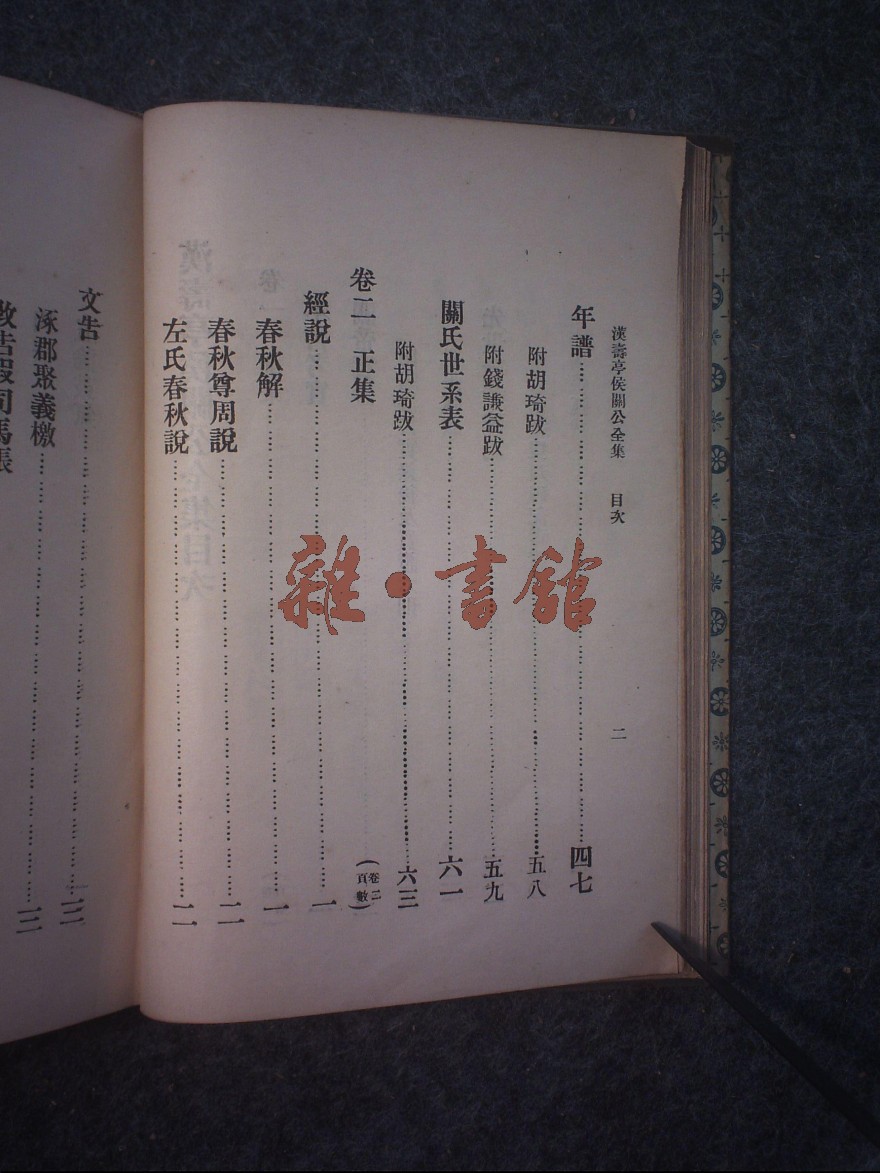 漢壽亭侯關公全集 目次 二
年譜……四七
附胡琦跋……五八
附錢謙益跋……五九
關氏世系表……六一
附胡琦跋……六三
卷二 正集(卷二頁數)
經說……一
春秋解……一
春秋尊周說……二
左氏春秋說……二
文告……三
涿郡聚義檄……三
三
雜·書館